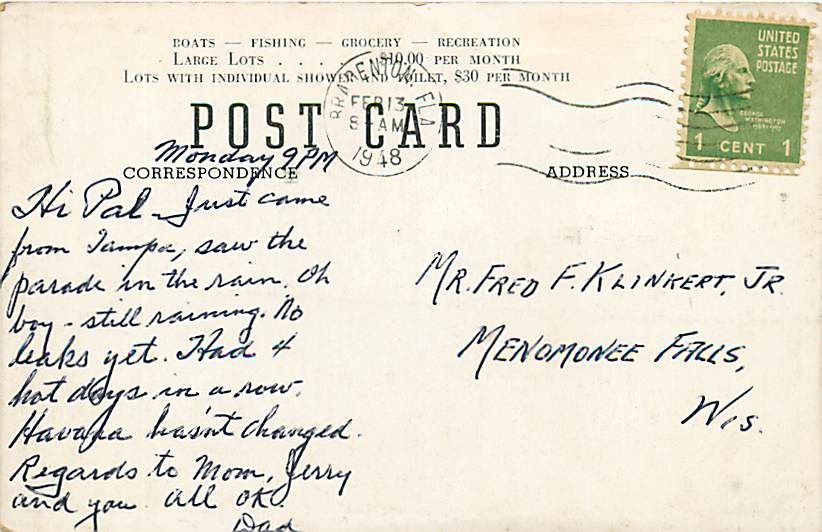 BOATS — FISHING — GROCERY — RECREATION
LARGE LOTS . . . . $10.00 PER MONTH
LOTS WITH INDIVIDUAL SHOWER AND TOILET, $30 PER MONTH
BRADENTON, FLA
FEB 13
8 - AM
1948
UNITED
STATES
POSTAGE
GEORGE
WASHINGTON
1 CENT 1
POST CARD
Monday 9 PM
CORRESPONDENCE
ADDRESS
Hi Pal - Just came
from Tampa, saw the
parade in the rain. Oh
boy - still raining. No
leaks yet. Had 4
hot days in a row.
Havana hasn't changed.
Regards to Mom, Jerry
and you. All OK.
Dad
MR. FRED F. KLINKERT, JR.
MENOMONEE FALLS,
Wis.